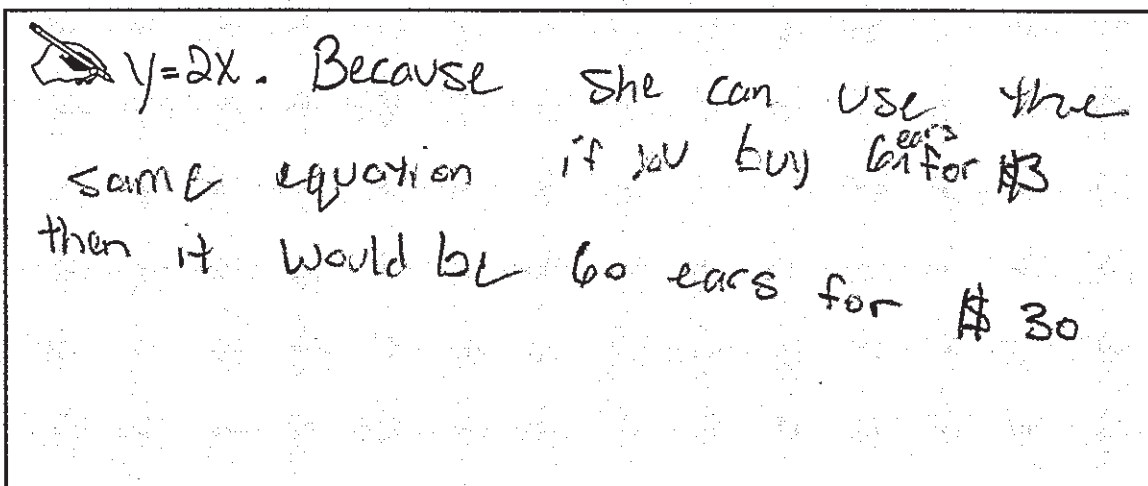 y=2x. Because she can use the
same equation if you buy 6 ears for $3
then it would be 60 ears for $30